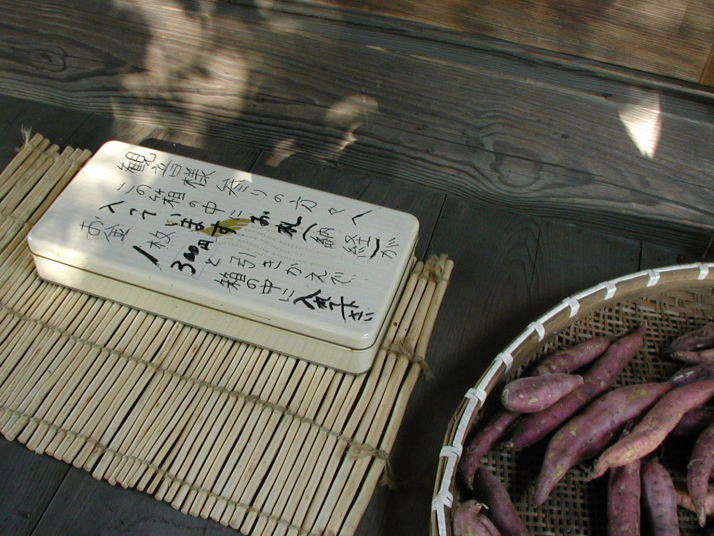 観音様参りの方々へ
この箱の中にお札(納経)が
入っています
お金
1枚300円と引きかえで
箱の中に入れて下さい